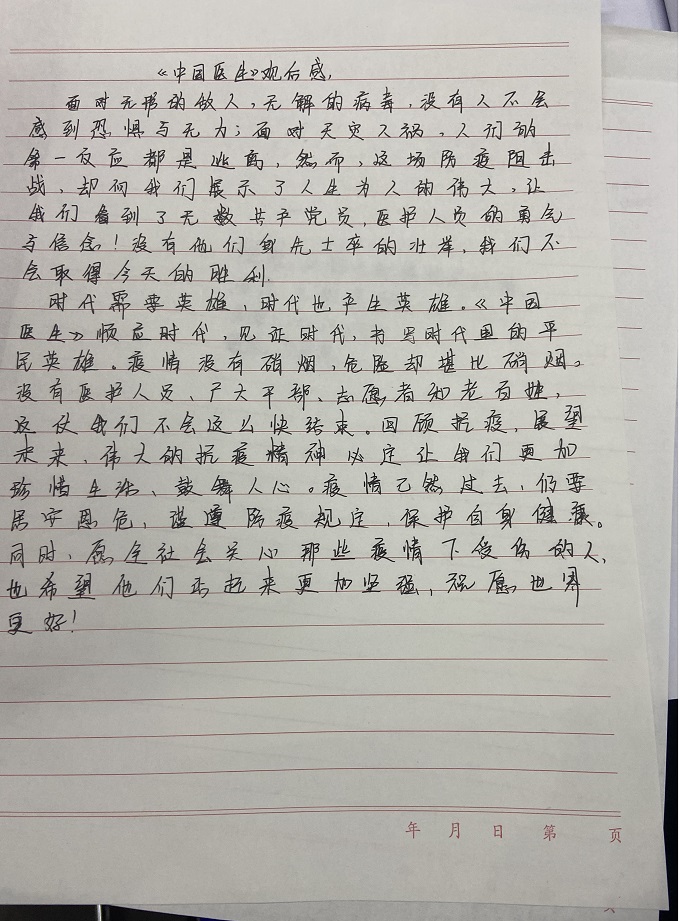 《中国医生》观后感.
面对无形的敌人,无解的病毒,没有人不会
感到恐惧与无力;面对天灾人祸,人们的
第一反应都是逃离,然而,这场防疫阻击
战,却向我们展示了人生为人的伟大,让
我们看到了无数共产党员,医护人员的勇气
与信念!没有他们身先士卒的壮举,我们不
会取得今天的胜利.
时代需要英雄,时代也产生英雄。《中国
医生》顺应时代,见证时代,书写时代里的平
民英雄。疫情没有硝烟,危险却堪比硝烟。
没有医护人员、广大干部、志愿者和老百姓,
这仗我们不会这么快结束。回顾抗疫,展望
未来、伟大的抗疫精神必定让我们更加
珍惜生活、鼓舞人心。疫情已然过去,仍要
居安思危,谨遵防疫规定,保护自身健康。
同时,愿全社会关心那些疫情下受伤的人,
也希望他们 起来更加坚强,祝愿世界
更好!
年 月 日 第 页